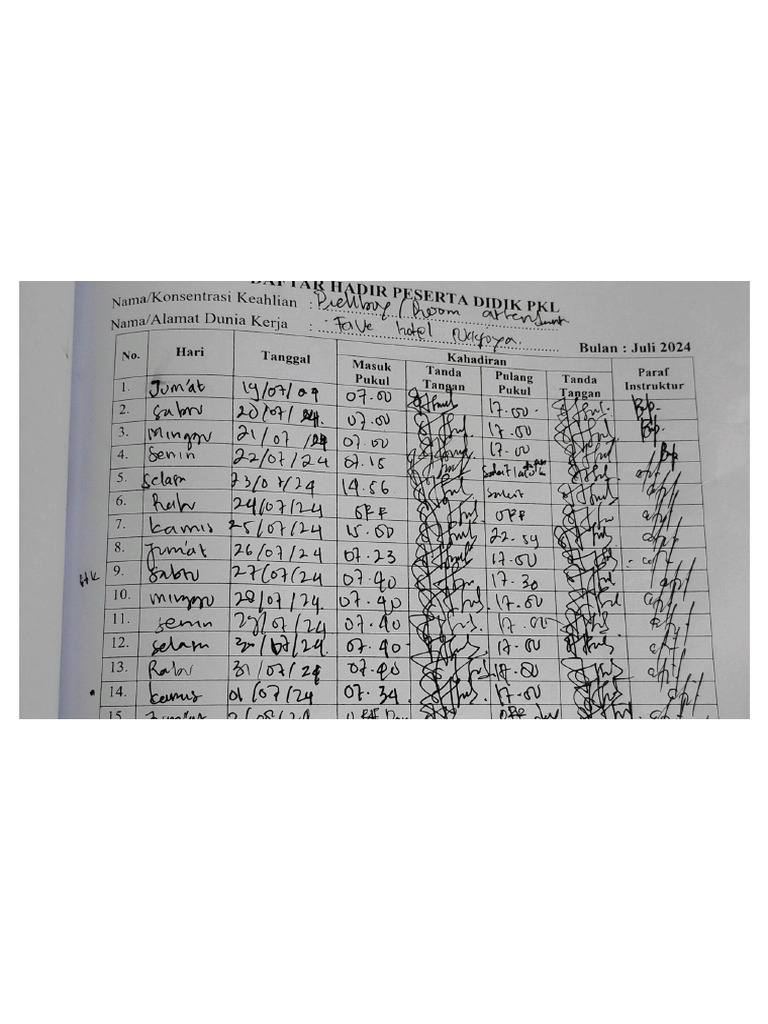 DAFTAR HADIR PESERTA DIDIK PKL
Nama/Konsentrasi Keahlian : / Room attendant
Nama/Alamat Dunia Kerja : Fave hotel
Bulan : Juli 2024
No. Hari Tanggal Kahadiran Paraf Instruktur
Masuk Pukul Tanda Tangan Pulang Pukul Tanda Tangan
1. Jum'at 19/07/ 07.00 17.00 Bp.
2. Sabtu 20/07/24. 07.00 17.00 Bp.
3. Minggu 21/07/24 07.00 17.00 Bp
4. Senin 22/07/24 07.15
5. Selasa 23/07/24 14.56 sakit
6. Rabu 24/07/24 OFF OFF
7. kamis 25/07/24 15.00 22.59
8. Jum'at 26/07/24 07.23 17.00
HK 9. Sabtu 27/07/24 07.40 17.30
10. minggu 28/07/24. 07.40 17.00
11. senin 29/07/24 07.40 17.00
12. selasa 30/07/24. 07.40 17.00
13. Rabu 31/07/24 07.40 17.00
14. kamis 01/07/24 07.34 17.00
15. Jum'at OFF